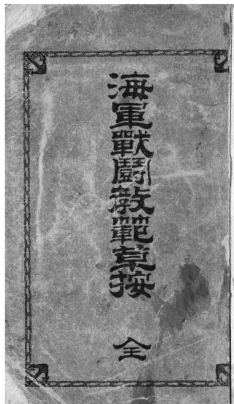 海軍戰鬪教範草按 全